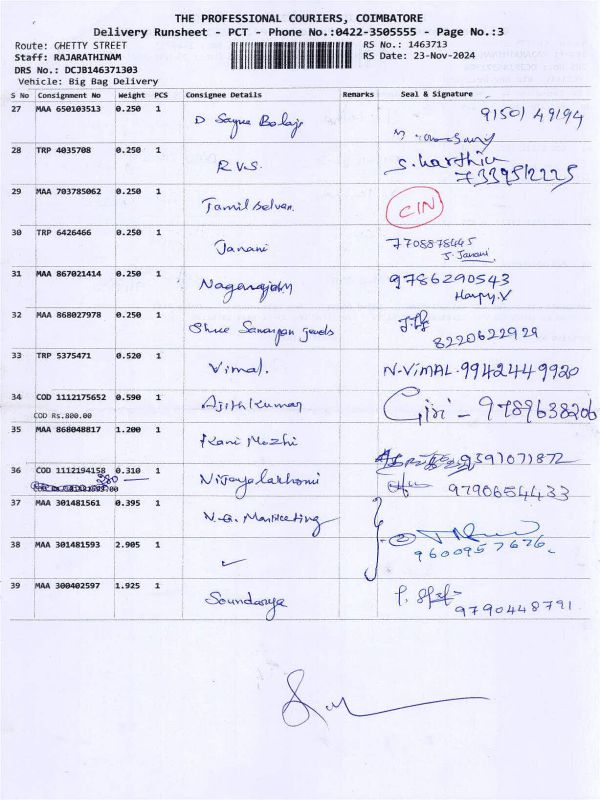 THE PROFESSIONAL COURIERS, COIMBATORE
Delivery Runsheet - PCT - Phone No.:0422-3505555 - Page No.:3
Route: CHETTY STREET RS No.: 1463713
Staff: RAJARATHINAM RS Date: 23-Nov-2024
DRS No.: DCJB146371303
Vehicle: Big Bag Delivery
S No Consignment No Weight PCS Consignee Details Remarks Seal & Signature
27 MAA 650103513 0.250 1 D Balaji 9150149194
28 TRP 4035708 0.250 1 R.V.S. S. Karthik
7339512225
29 MAA 703785062 0.250 1 Tamil Selvan CIN
30 TRP 6426466 0.250 1 Janani 7708878445
J. Janani
31 MAA 867021414 0.250 1 Nagarajan 9786290543
32 MAA 868027978 0.250 1 Shree 8220622929
33 TRP 5375471 0.520 1 Vimal. N.ViMAL. 9942449920
34 COD 1112175652 0.590 1 Ajith Kumar Giri - 9789638206
COD Rs.800.00
35 MAA 868048817 1.200 1 Kani Mozhi 9391071872
36 COD 1112194158 0.310 1 9790654433
380
37 MAA 301481561 0.395 1 N.G. Marketing
38 MAA 301481593 2.905 1 ✓ ② 9600957676
39 MAA 300402597 1.925 1 Soundarya 9790448791